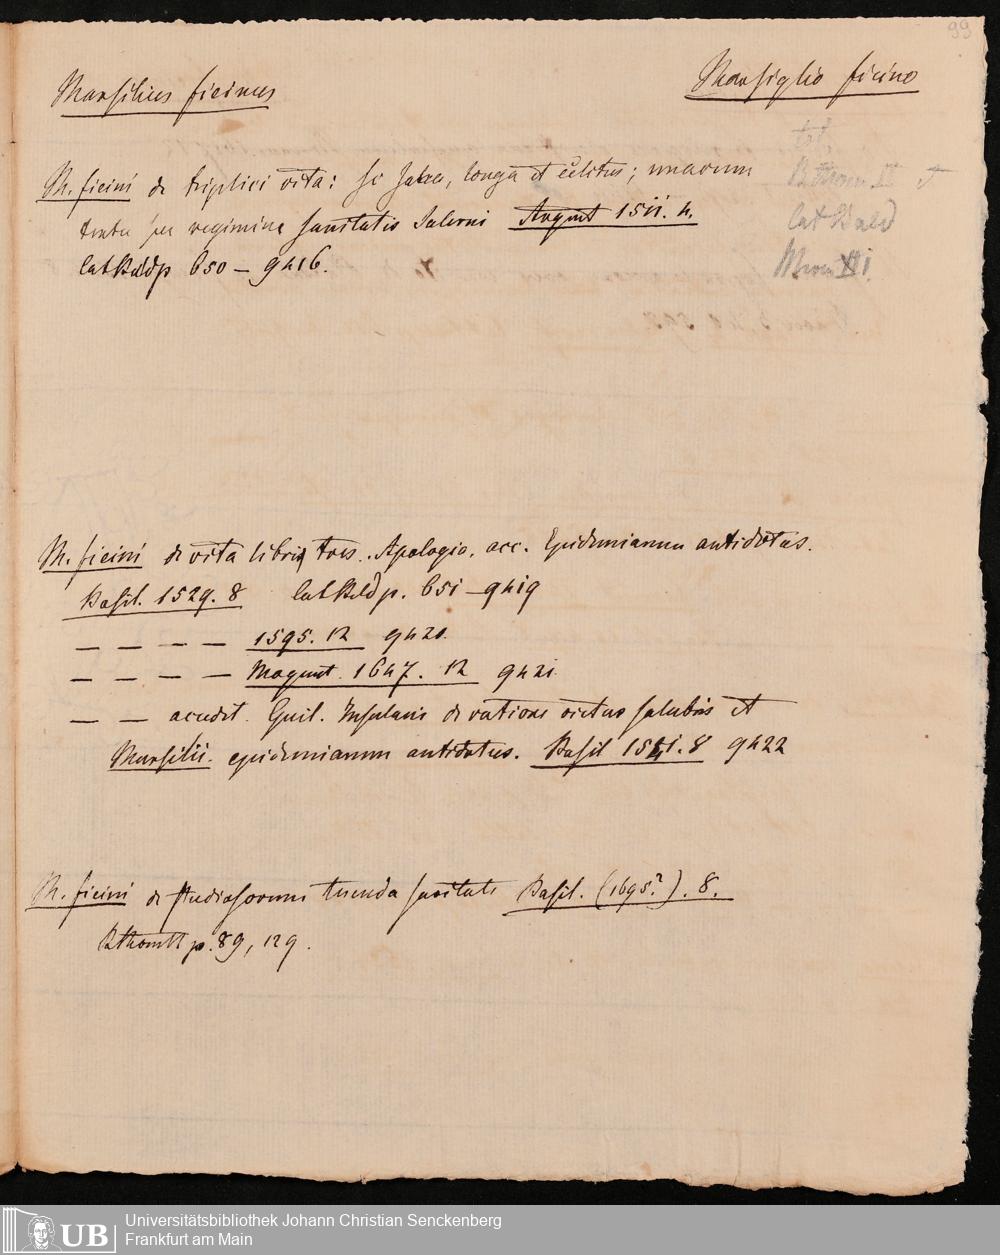 99
Marsilius Ficinus
Marsiglio Ficino
M. Ficini de triplici vita: sc sana, longa et celitus; unacum
per regimine sanitatis Salerni Argent 1511. 4.
cat Bald p 650 — 9416.
tot.
Bthom II et
cat Bald
M. Ficini de vita libri tres. Apologia. acc. Epidemiarum antidotus.
Basil. 1529. 8 cat Bald p. 651 — 9419
— — — — 1595. 12 9420.
— — — — Mogunt. 1647. 12 9421.
— — accedit. Guil. Insulani de ratione victus salubris et
Marsilii. epidemiarum antidotus. Basil 1541. 8 9422
M. Ficini de studiosorum tuenda sanitate Basil. (1695?). 8.
Bthom II p. 89, 129.
UB
Universitätsbibliothek Johann Christian Senckenberg
Frankfurt am Main